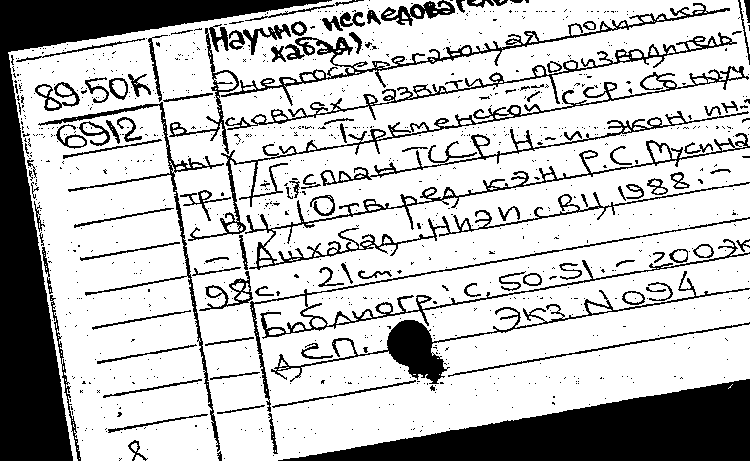 Научно-исследователь
хабад).
89-50К
6912
Энергосберегающая политика
в условиях развития производитель-
ных сил Туркменской ССР: Сб. науч.
тр. / Госплан ТССР, Н.-и. экон. ин-т
с ВЦ; (Отв. ред. к.э.н. Р.С. Мусина
. - Ашхабад: НИЭИ с ВЦ, 1988. -
98с.; 21см.
Библиогр.: с. 50-51. - 200эк
ДСП. Экз. N 094.
8